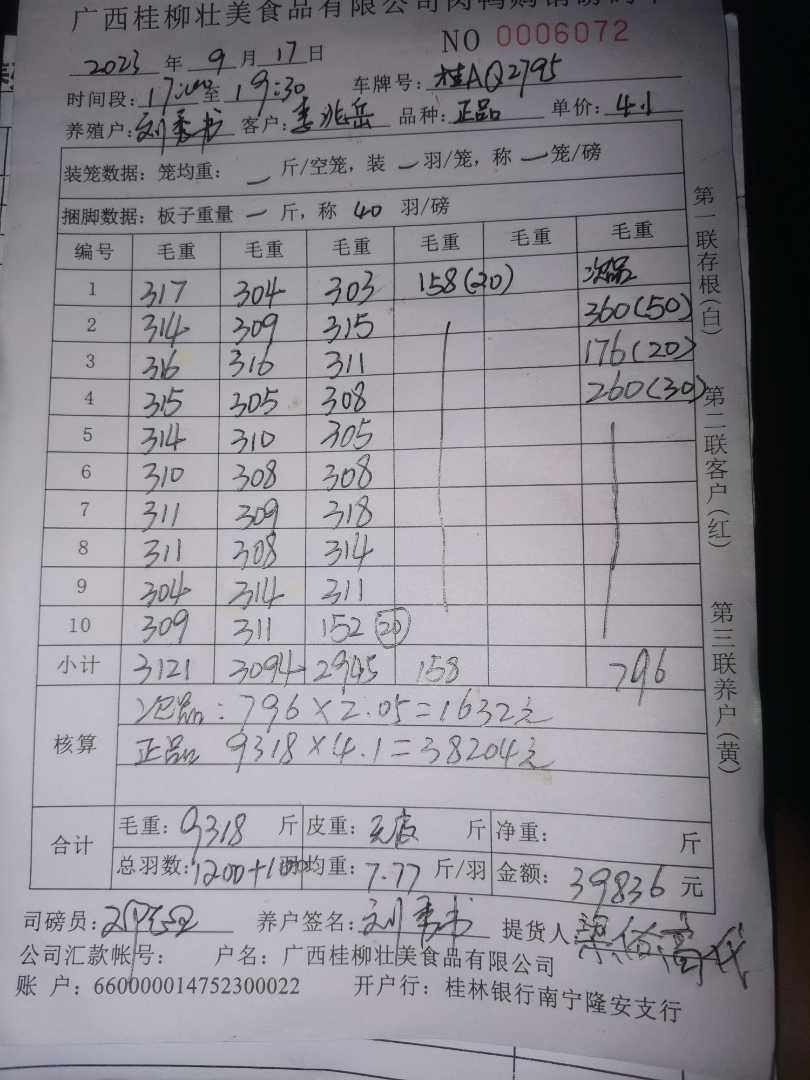 广西桂柳壮美食品有限公司肉鸭购销磅码单
NO 0006072
2023 年 9 月 17 日
时间段: 17:00 至 19:30 车牌号: 桂AQ2795
养殖户: 刘秀书 客户: 李兆岳 品种: 正品 单价: 4.1
装笼数据: 笼均重: — 斤/空笼, 装 — 羽/笼, 称 — 笼/磅
捆脚数据: 板子重量 — 斤, 称 40 羽/磅
编号 毛重 毛重 毛重 毛重 毛重 毛重
1 317 304 303 158(20) 次品
2 314 309 315 360(50)
3 316 316 311 176(20)
4 315 305 308 260(30)
5 314 310 305
6 310 308 308
7 311 309 318
8 311 308 314
9 304 314 311
10 309 311 152 (20)
小计 3121 3094 2945 158 796
核算
次品: 796×2.05=1632元
正品 9318×4.1=38204元
合计
毛重: 9318 斤 皮重: 斤 净重: 斤
总羽数: 1200+100 均重: 7.77 斤/羽 金额: 39836 元
司磅员: 养户签名: 刘秀书 提货人:
公司汇款帐号: 户名: 广西桂柳壮美食品有限公司
账 户: 660000014752300022 开户行: 桂林银行南宁隆安支行
第一联存根(白)
第二联客户(红)
第三联养户(黄)